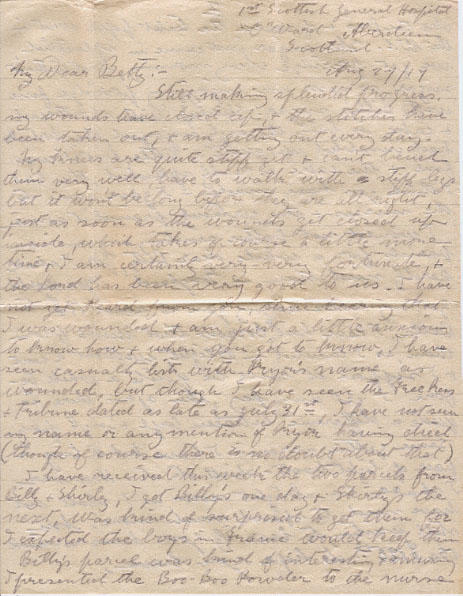 1st Scottish General Hospital
"C" Ward Aberdeen
Scotland
Aug 27/17
My Dear Betty:-
Still making splendid progress.
my wounds have closed up, & the stitches have
been taken out, & am getting out every day.
My knees are quite stiff yet & can't bend
them very well, have to walk with stiff legs
but it won't be long before they are all right,
just as soon as the wounds get closed up
inside, which takes of course a little more
time, I am certainly very very fortunate, &
the Lord has been very good to us. I have
not yet heard from you, since hearing that
I was wounded & am just a little anxious
to know how & when you got to know, I have
seen casualty lists with Pryor's name as
wounded, but though I have seen the Free Press
& Tribune dated as late as July 31st, I have not seen
my name or any mention of Pryor having died
(though of course there is no doubt about that)
I have received this week the two parcels from
Billy & Shorty, I got Billy's one day & Shorty's the
next, was kind of surprised to get them for
I expected the boys in France would keep them
Billy's parcel was kind of interesting & amusing
I presented the Boo-Boo Powder to the nurse